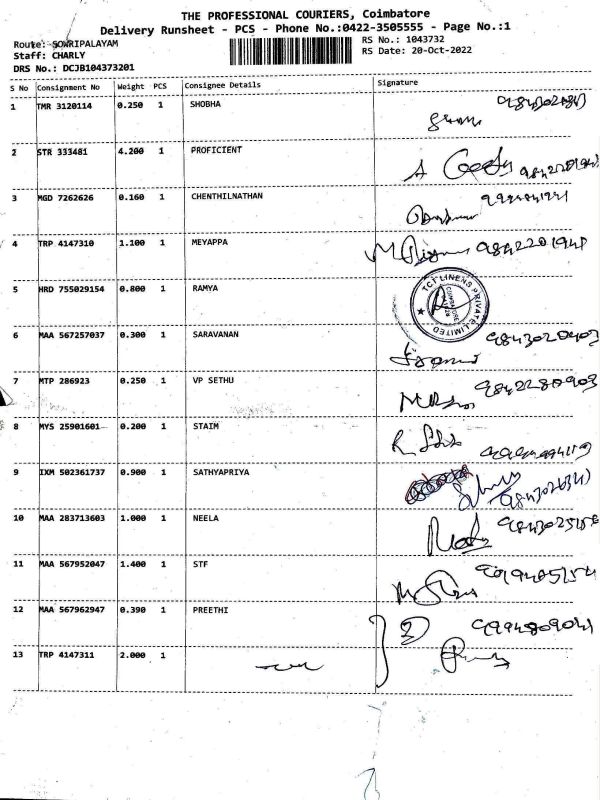 THE PROFESSIONAL COURIERS, Coimbatore
Delivery Runsheet - PCS - Phone No.:0422-3505555 - Page No.:1
Route: SOWRIPALAYAM
RS No.: 1043732
Staff: CHARLY
RS Date: 20-Oct-2022
DRS No.: DCJB104373201
S No Consignment No Weight PCS Consignee Details Signature
1 TMR 3120114 0.250 1 SHOBHA
2 STR 333481 4.200 1 PROFICIENT
3 MGD 7262626 0.160 1 CHENTHILNATHAN
4 TRP 4147310 1.100 1 MEYAPPA 9842201948
5 HRD 755029154 0.800 1 RAMYA
TCI LINENS PRIVATE LIMITED
6 MAA 567257037 0.300 1 SARAVANAN 9843020403
7 MTP 286923 0.250 1 VP SETHU 9842280903
8 MYS 25901601 0.200 1 STAIM
9 IXM 502361737 0.900 1 SATHYAPRIYA
10 MAA 283713603 1.000 1 NEELA
11 MAA 567952047 1.400 1 STF
12 MAA 567962947 0.390 1 PREETHI 2 9994809041
13 TRP 4147311 2.000 1